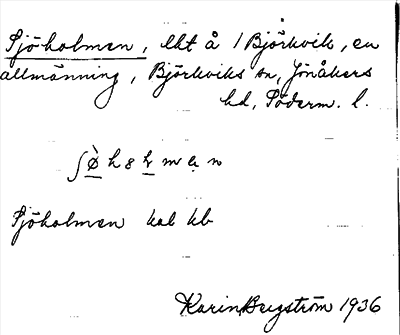 Sjöholmen, lht å 1 Björkvik, en
allmänning, Björkviks sn, Jönåkers
hd, Söderm. l.
Sjöholmen kal kb
Karin Bergström 1936